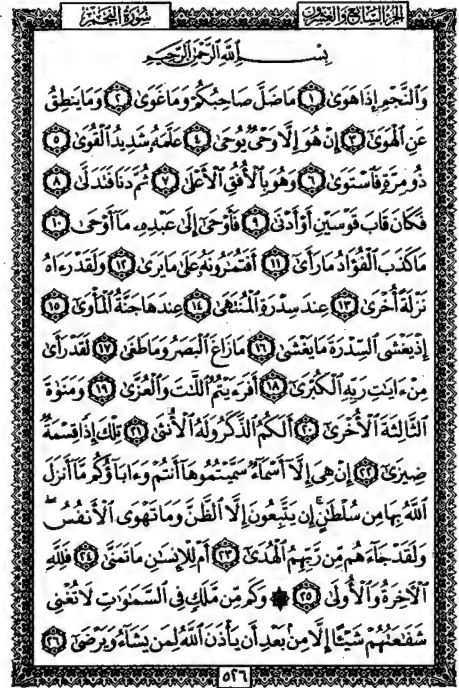 الجزء السابع والعشرون
سُورَةُ النَّجْمِ
بِسْمِ ٱللَّهِ ٱلرَّحْمَٰنِ ٱلرَّحِيمِ
وَٱلنَّجْمِ إِذَا هَوَىٰ ١ مَا ضَلَّ صَاحِبُكُمْ وَمَا غَوَىٰ ٢ وَمَا يَنطِقُ
عَنِ ٱلْهَوَىٰ ٣ إِنْ هُوَ إِلَّا وَحْىٌ يُوحَىٰ ٤ عَلَّمَهُۥ شَدِيدُ ٱلْقُوَىٰ ٥
ذُو مِرَّةٍ فَٱسْتَوَىٰ ٦ وَهُوَ بِٱلْأُفُقِ ٱلْأَعْلَىٰ ٧ ثُمَّ دَنَا فَتَدَلَّىٰ ٨
فَكَانَ قَابَ قَوْسَيْنِ أَوْ أَدْنَىٰ ٩ فَأَوْحَىٰٓ إِلَىٰ عَبْدِهِۦ مَآ أَوْحَىٰ ١٠
مَا كَذَبَ ٱلْفُؤَادُ مَا رَأَىٰٓ ١١ أَفَتُمَٰرُونَهُۥ عَلَىٰ مَا يَرَىٰ ١٢ وَلَقَدْ رَءَاهُ
نَزْلَةً أُخْرَىٰ ١٣ عِندَ سِدْرَةِ ٱلْمُنتَهَىٰ ١٤ عِندَهَا جَنَّةُ ٱلْمَأْوَىٰٓ ١٥
إِذْ يَغْشَى ٱلسِّدْرَةَ مَا يَغْشَىٰ ١٦ مَا زَاغَ ٱلْبَصَرُ وَمَا طَغَىٰ ١٧ لَقَدْ رَأَىٰ
مِنْ ءَايَٰتِ رَبِّهِ ٱلْكُبْرَىٰٓ ١٨ أَفَرَءَيْتُمُ ٱللَّٰتَ وَٱلْعُزَّىٰ ١٩ وَمَنَوٰةَ
ٱلثَّالِثَةَ ٱلْأُخْرَىٰٓ ٢٠ أَلَكُمُ ٱلذَّكَرُ وَلَهُ ٱلْأُنثَىٰ ٢١ تِلْكَ إِذًا قِسْمَةٌ
ضِيزَىٰٓ ٢٢ إِنْ هِىَ إِلَّآ أَسْمَآءٌ سَمَّيْتُمُوهَآ أَنتُمْ وَءَابَآؤُكُم مَّآ أَنزَلَ
ٱللَّهُ بِهَا مِن سُلْطَٰنٍ ۚ إِن يَتَّبِعُونَ إِلَّا ٱلظَّنَّ وَمَا تَهْوَى ٱلْأَنفُسُ ۖ
وَلَقَدْ جَآءَهُم مِّن رَّبِّهِمُ ٱلْهُدَىٰٓ ٢٣ أَمْ لِلْإِنسَٰنِ مَا تَمَنَّىٰ ٢٤ فَلِلَّهِ
ٱلْءَاخِرَةُ وَٱلْأُولَىٰ ٢٥ ۞ وَكَم مِّن مَّلَكٍ فِى ٱلسَّمَٰوَٰتِ لَا تُغْنِى
شَفَٰعَتُهُمْ شَيْـًٔا إِلَّا مِنۢ بَعْدِ أَن يَأْذَنَ ٱللَّهُ لِمَن يَشَآءُ وَيَرْضَىٰٓ ٢٦
٥٢٦